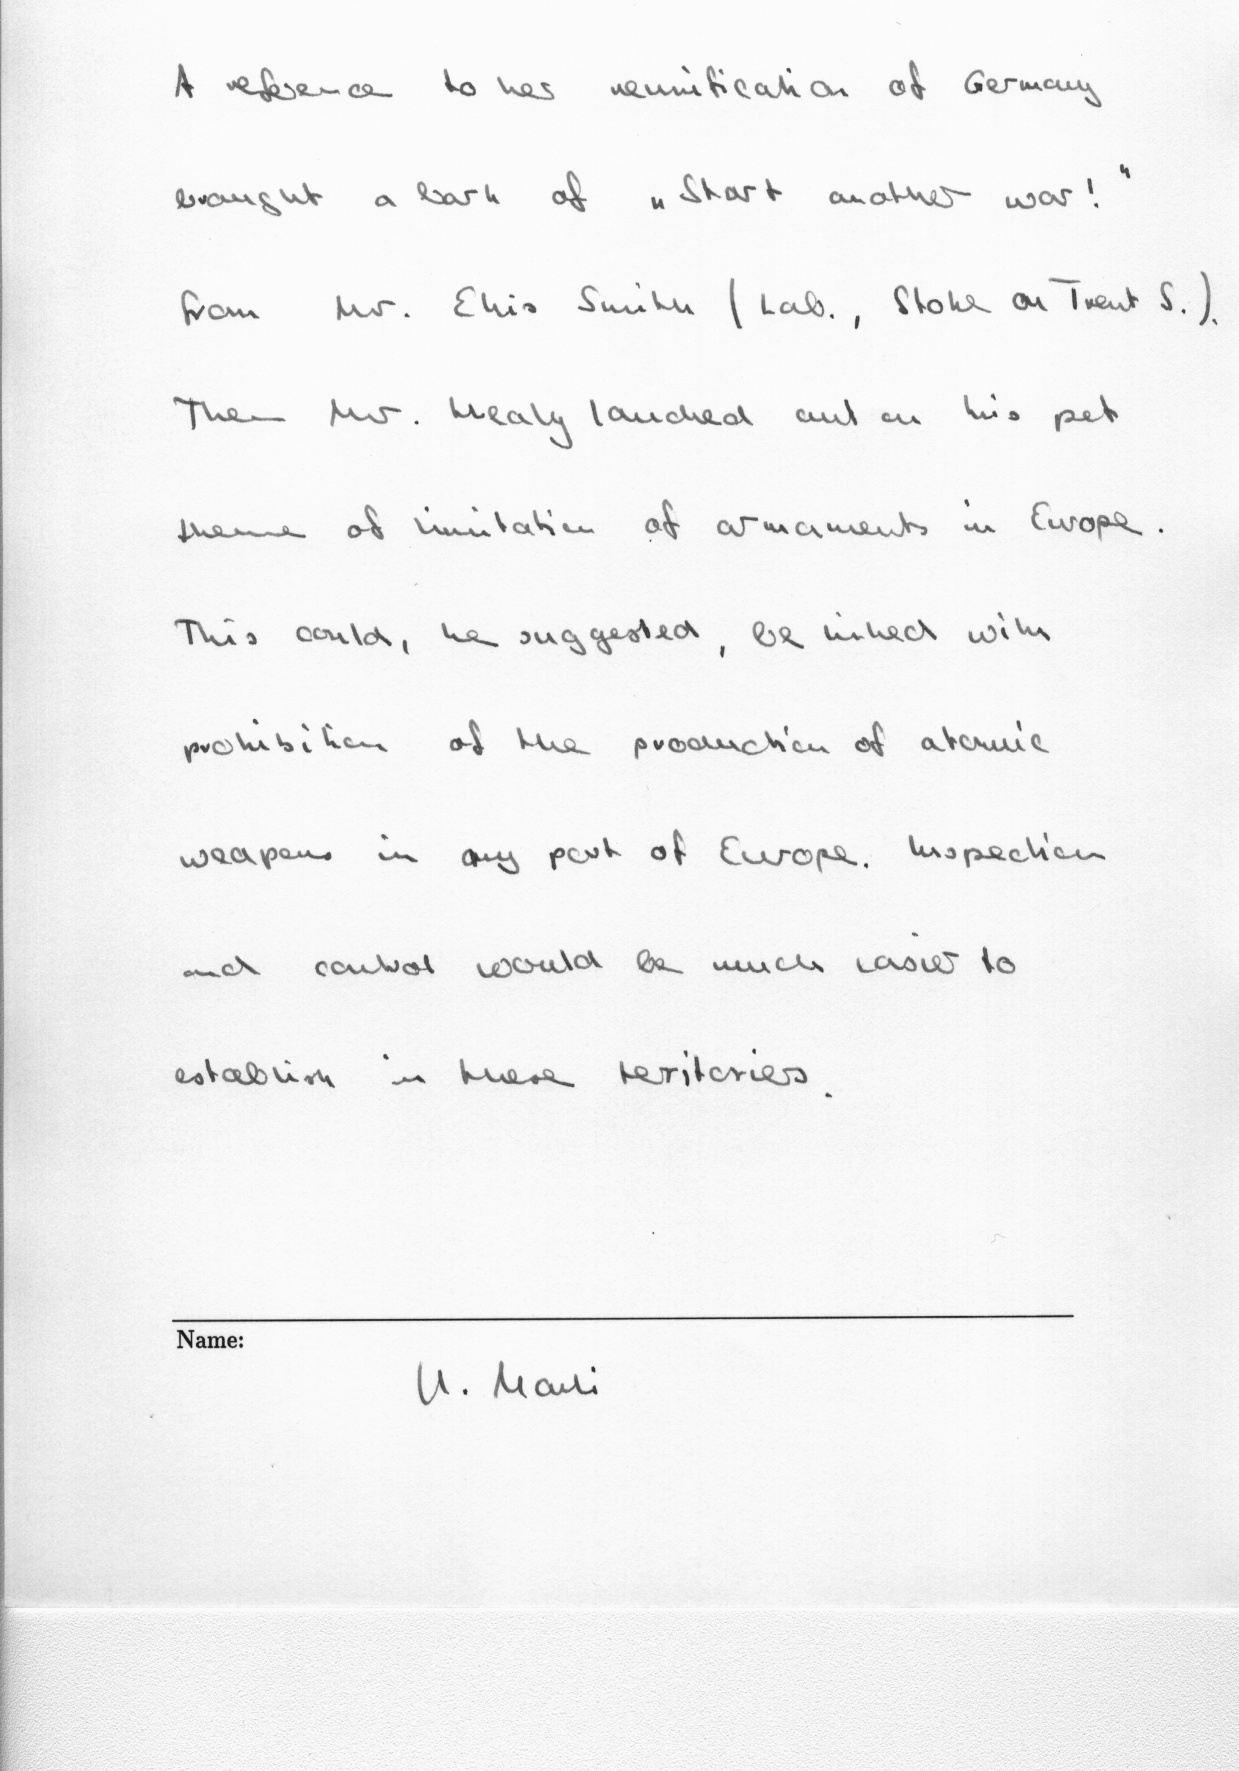 A reference to her reunification of Germany
brought a bark of „Start another war!"
from Mr. Ellis Smith (Lab., Stoke on Trent S.).
Then Mr. Healy lauched out on his pet
theme of limitation of armaments in Europe.
This could, he suggested, be linked with
prohibition of the production of atomic
weapons in any part of Europe. Inspection
and control would be much easier to
establish in these teritories.
Name:
U. Marti